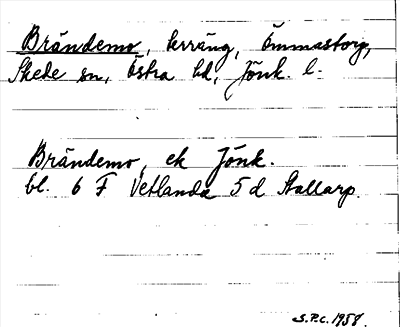 Brändemo, terräng, Ömmastorp,
Skede sn, Östra hd, Jönk. l.
Brändemo, ek Jönk.
bl. 6 F Vetlanda 5 d Stallarp.
S.P.C. 1958.